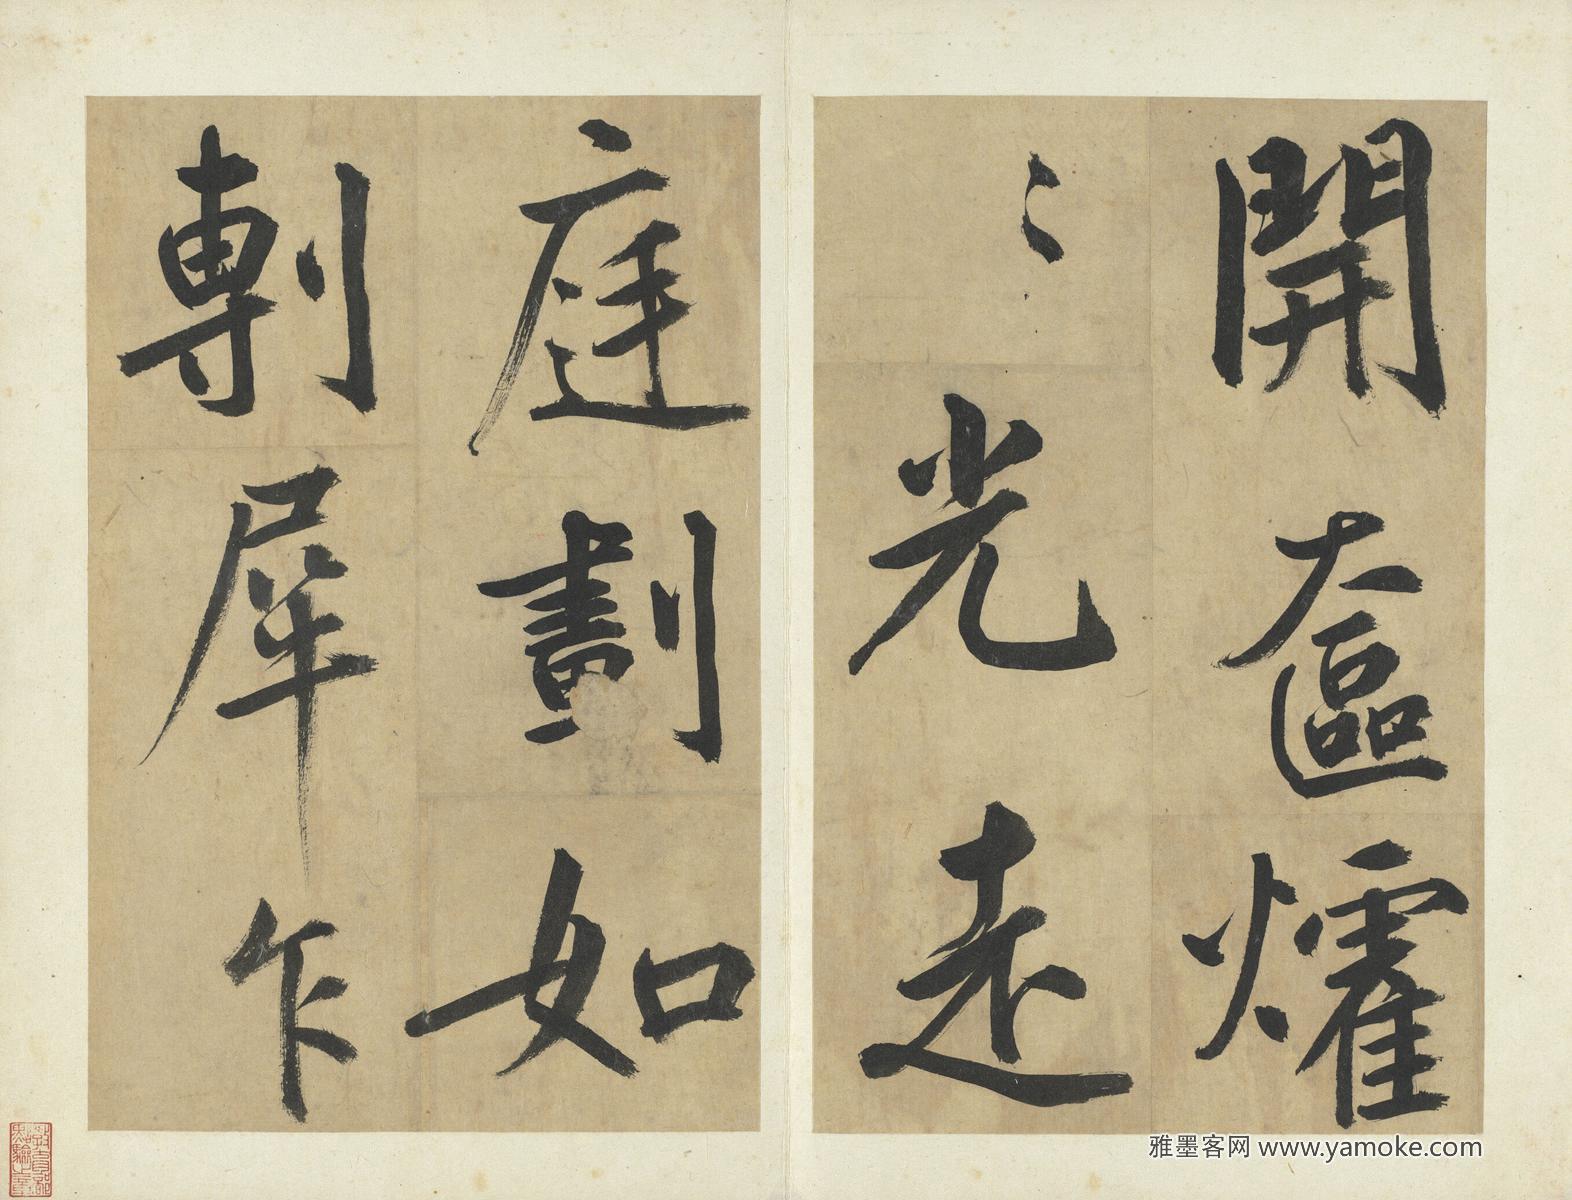 開奩㸌
〻光走
庭劃如
剸犀乍
雅墨客网 www.yamoke.com